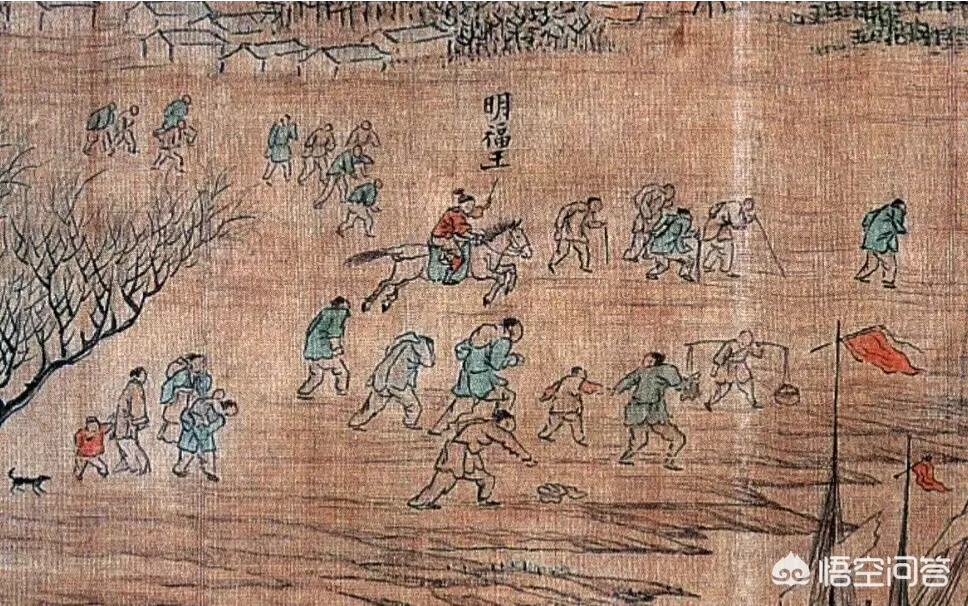 明福王
悟空问答